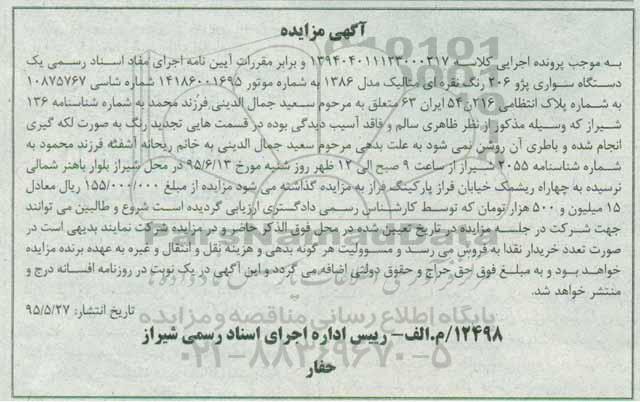 آگهی مزایده
به موجب پرونده اجرایی کلاسه ۱۳۹۴۰۴۰۱۱۱۲۳۰۰۰۲۱۷ و برابر مقررات آیین نامه اجرای مفاد اسناد رسمی یک
دستگاه سواری پژو ۲۰۶ رنگ نقره ای متالیک مدل ۱۳۸۶ به شماره موتور ۱۴۱۸۶۰۰۱۶۹۵ شماره شاسی ۱۰۸۷۵۷۶۷
به شماره پلاک انتظامی ۲۱۶ن۵۴ ایران ۶۳ متعلق به مرحوم سعید جمال الدینی فرزند محمد به شماره شناسنامه ۱۳۶
شیراز که وسیله مذکور از نظر ظاهری سالم و فاقد آسیب دیدگی بوده در قسمت هایی تجدید رنگ به صورت لکه گیری
انجام شده و باطری آن روشن نمی شود به علت بدهی مرحوم سعید جمال الدینی به خانم ریحانه آشفته فرزند محمود به
شماره شناسنامه ۲۰۵۵ شیراز از ساعت ۹ صبح الی ۱۲ ظهر روز شنبه مورخ ۹۵/۶/۱۳ در محل شیراز بلوار باهنر شمالی
نرسیده به چهاراه ریشمک خیابان فراز پارکینگ فراز به مزایده گذاشته می شود مزایده از مبلغ ۱۵۵/۰۰۰/۰۰۰ ریال معادل
۱۵ میلیون و ۵۰۰ هزار تومان که توسط کارشناس رسمی دادگستری ارزیابی گردیده است شروع و طالبین می توانند
جهت شرکت در جلسه مزایده در تاریخ تعیین شده در محل فوق الذکر حاضر و در مزایده شرکت نمایند بدیهی است در
صورت تعدد خریدار نقدا به فروش می رسد و مسوولیت هر گونه بدهی و هزینه نقل و انتقال و غیره به عهده برنده مزایده
خواهد بود و به مبلغ فوق حق حراج و حقوق دولتی اضافه می گردد و این آگهی در یک نوبت در روزنامه افسانه درج و
منتشر خواهد شد.
تاریخ انتشار: ۹۵/۵/۲۷
۱۲۴۹۸/م.الف- رییس اداره اجرای اسناد رسمی شیراز
حفار
پایگاه اطلاع رسانی مناقصه و مزایده
۰۲۱-۸۸۳۴۹۶۷۰-۵